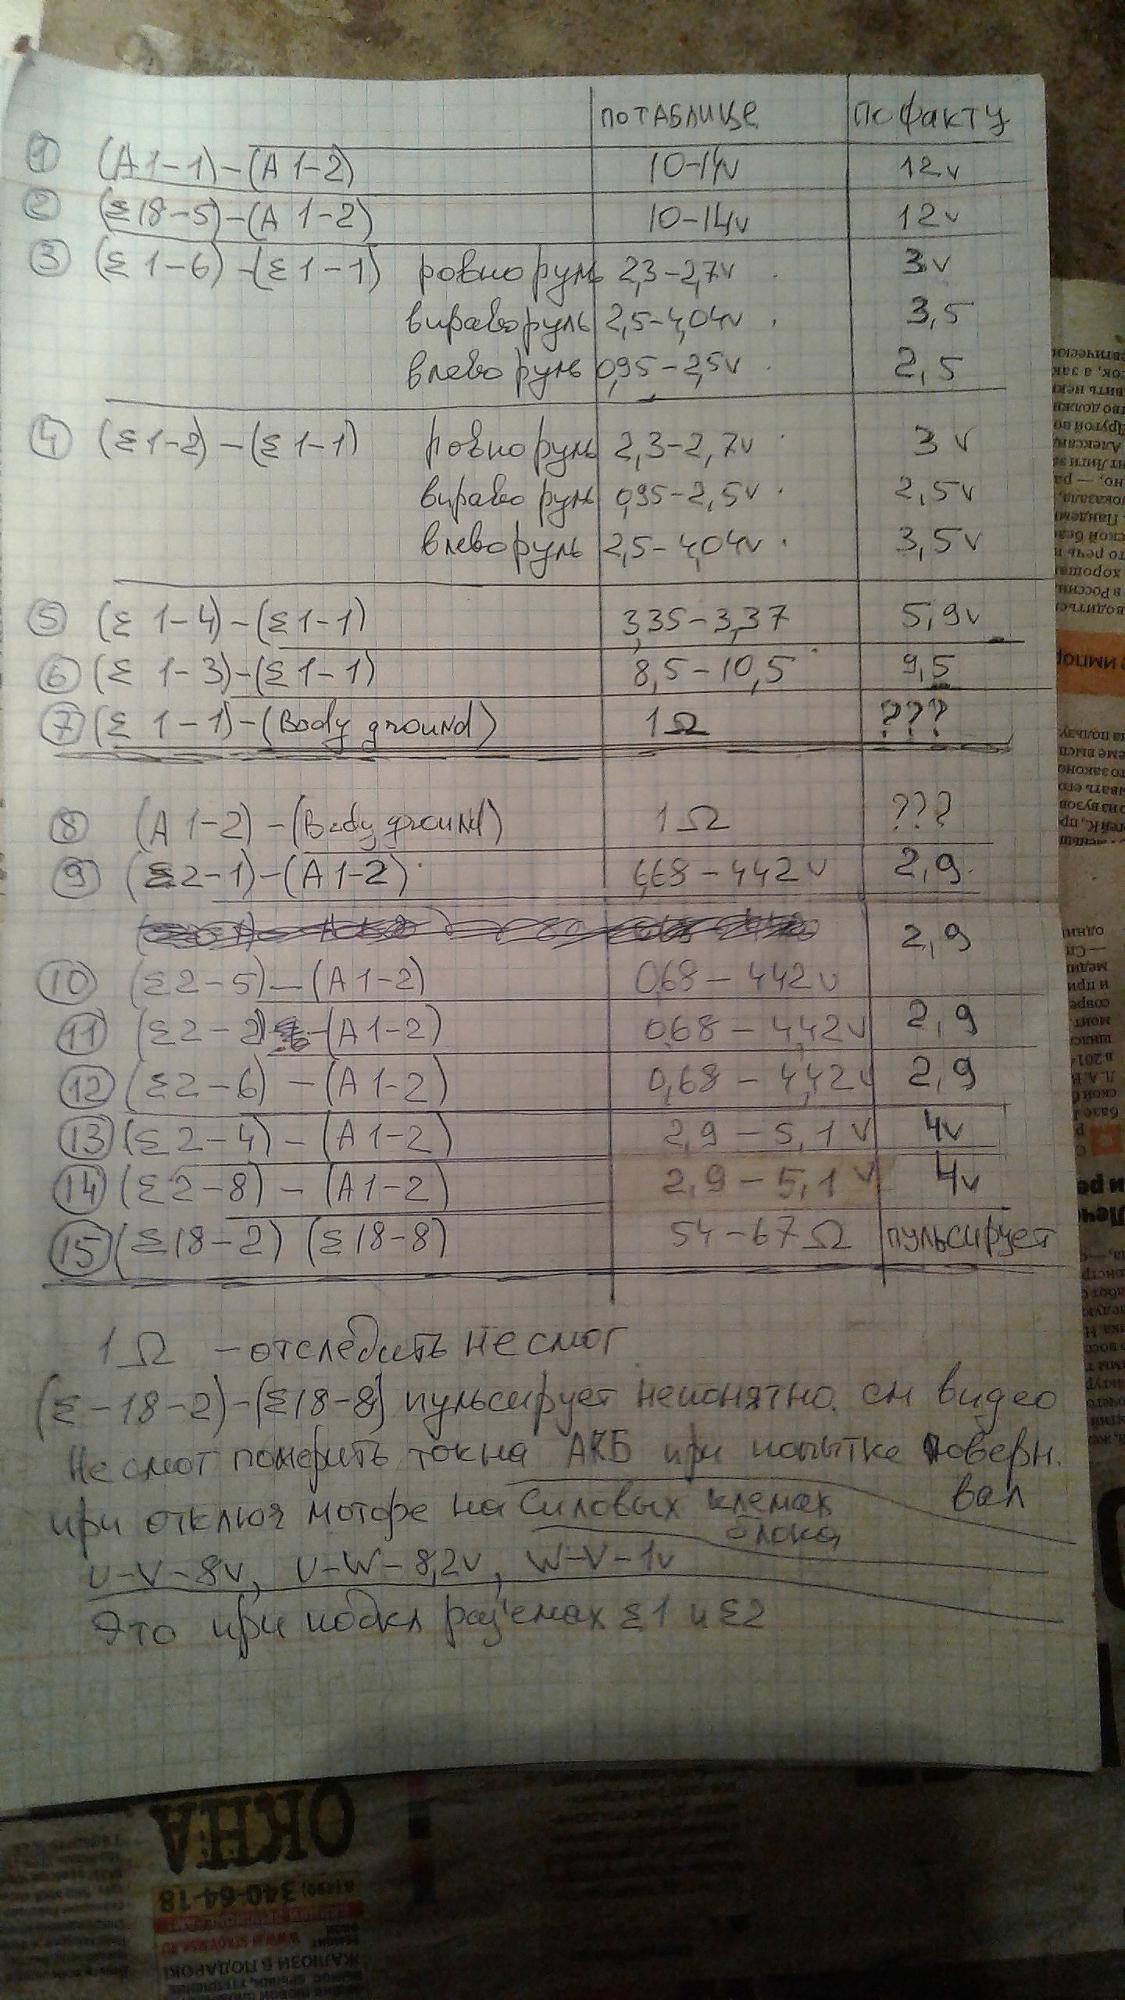 ПО ТАБЛИЦЕ ПО ФАКТУ
1 (A 1-1)-(A 1-2) 10-14v 12v
2 (Σ18-5)-(A 1-2) 10-14v 12v
3 (Σ 1-6)-(Σ1-1) ровно руль 2,3-2,7v 3v
вправо руль 2,5-4,04v 3,5
влево руль 0,95-2,5v 2,5
4 (Σ1-2)-(Σ1-1) ровно руль 2,3-2,7v 3v
вправо руль 0,95-2,5v 2,5v
влево руль 2,5-4,04v 3,5v
5 (Σ 1-4)-(Σ1-1) 3,35-3,37 5,9v
6 (Σ 1-3)-(Σ1-1) 8,5-10,5 9,5
7 (Σ 1-1)-(Body ground) 1Ω ???
8 (A 1-2)-(Body ground) 1Ω ???
9 (Σ2-1)-(A1-2) 2,9
2,9
10 (Σ2-5)-(A1-2) 0,68-442v
11 (Σ2-2)-(A1-2) 0,68-4,42v 2,9
12 (Σ2-6)-(A1-2) 0,68-4,42v 2,9
13 (Σ2-4)-(A1-2) 2,9-5,1v 4v
14 (Σ2-8)-(A1-2) 2,9-5,1v 4v
15 (Σ18-2) (Σ18-8) 54-67Ω пульсирует
1Ω -отследить не смог
(Σ-18-2)-(Σ18-8) пульсирует непонятно. см видео
Не смог померить ток на АКБ при попытке поверн.
вал
при отключ моторе на силовых клемах
блока
U-V-8v, U-W-8,2v, W-V-1v
Это при подкл раз'емах Σ1 и Σ2
ОКНА
340-64-18
ЖАЛЮЗИ В ПОДАРОК!